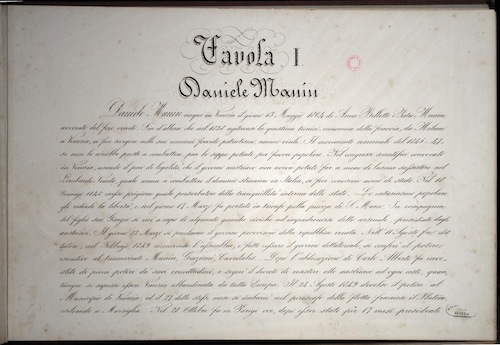 Tavola I.
Daniele Manin
Daniele Manin nacque in Venezia il giorno 13 Maggio 1804 di Anna Bellotto e Pietro Manin
avvocato del foro veneto. Fin d'allora che nel 1838 agitavasi la questione tecnica economica della ferrovia, da Milano
a Venezia, ei fece sorgere nelle sue concioni fervide patriotismo, animo virile. Il movimento nazionale del 1846-47
se non lo avrebbe posto a combattere, pure lo seppe potente per favore popolare. Nel congresso scientifico convocato
in Venezia, usando il pien di legalità, che il governo austriaco non aveva potuto far a meno di lasciare sussistere nel
Lombardo Veneto quale arma a combattere il dominio straniero in Italia, si fece conoscere uomo di stato. Nel 18
Gennajo 1848 
 prigione quale perturbatore della tranquillità interna dello stato. Lo
 popolare
gli ridiede la libertà, e nel giorno 17 Marzo fu portato in trionfo pella piazza di S. Marco. In compagnia
del figlio suo Giorgio si unì a capo di alquante guardie civiche ed impadronivasi dello arsenale, presidiato dagli
austriaci. Il giorno 23 Marzo si proclama il governo provvisorio della repubblica veneta. Nell' 11 Agosto fu
dittatore; nel Febbrajo 1849 rinunciando l'assemblea, e fatto cessare il governo dittatoriale, si confida il potere
esecutivo al triumvirato Manin, Graziani, Cavedalis. Dopo l'abdicazione di Carlo Alberto fu inve-
stito di pieni poteri da' suoi concittadini, e segnò il decreto di resistere alle austriache ad ogni costo, quan-
tunque si sapesse essere Venezia abbandonata da tutta Europa. Il 24 Agosto 1849 devolse il potere al
Municipio di Venezia, ed il 27 dello stesso mese si imbarcò nel piroscafo della flotta francese il Plutone,
esiliando a Marsiglia. Nel 21 Ottobre fu in Parigi ove, dopo esser stato per 17 mesi presidente